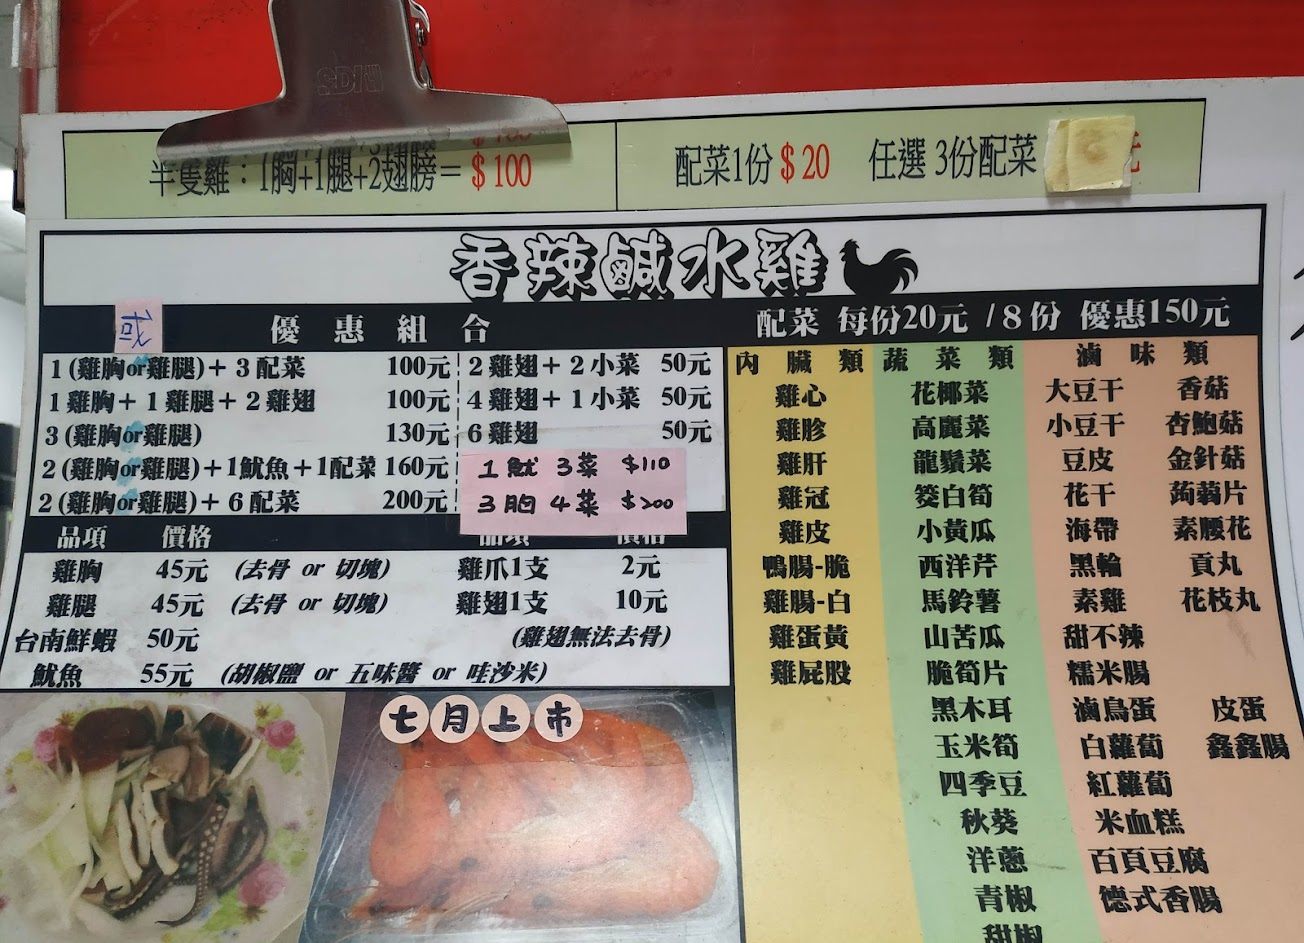 SDI
半隻雞：1胸+1腿+2翅膀＝$100
配菜1份$20 任選 3份配菜
香辣鹹水雞
或
優惠組合
1(雞胸or雞腿)+3配菜 100元
1雞胸+1雞腿+2雞翅 100元
3(雞胸or雞腿) 130元
2(雞胸or雞腿)+1魷魚+1配菜 160元
2(雞胸or雞腿)+6配菜 200元
2雞翅+2小菜 50元
4雞翅+1小菜 50元
6雞翅 50元
1魷 3菜 $110
3胸 4菜 $200
品項 價格
品項 價格
雞胸 45元 (去骨 or 切塊)
雞腿 45元 (去骨 or 切塊)
台南鮮蝦 50元
魷魚 55元 (胡椒鹽 or 五味醬 or 哇沙米)
雞爪1支 2元
雞翅1支 10元
(雞翅無法去骨)
七月上市
配菜 每份20元 /8份 優惠150元
內臟類
雞心
雞胗
雞肝
雞冠
雞皮
鴨腸-脆
雞腸-白
雞蛋黃
雞屁股
蔬菜類
花椰菜
高麗菜
龍鬚菜
筊白筍
小黃瓜
西洋芹
馬鈴薯
山苦瓜
脆筍片
黑木耳
玉米筍
四季豆
秋葵
洋蔥
青椒
甜椒
滷味類
大豆干 香菇
小豆干 杏鮑菇
豆皮 金針菇
花干 蒟蒻片
海帶 素腰花
黑輪 貢丸
素雞 花枝丸
甜不辣
糯米腸
滷鳥蛋 皮蛋
白蘿蔔 鑫鑫腸
紅蘿蔔
米血糕
百頁豆腐
德式香腸